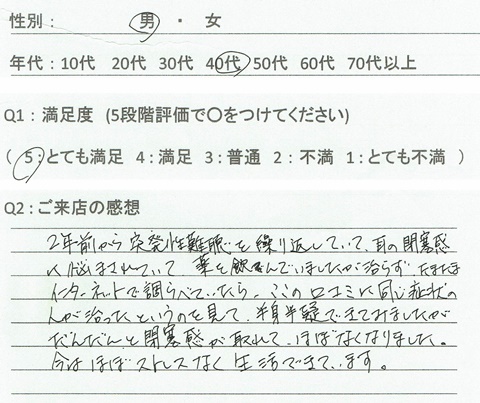 性別： 男 ・ 女
年代：10代 20代 30代 40代 50代 60代 70代以上
Q1：満足度 (5段階評価で〇をつけてください)
( 5：とても満足 4：満足 3：普通 2：不満 1：とても不満 )
Q2：ご来店の感想
2年前から突発性難聴を繰り返していて、耳の閉塞感
に悩まされていて 薬を飲んでいましたが治らず たまたま
インターネットで調らべていたら、ここの口コミに同じ症状の
人が治ったというのを見て、半身半疑できてみましたが
だんだんと閉塞感が取れて、ほぼなくなりました。
今はほぼストレスなく生活できています。